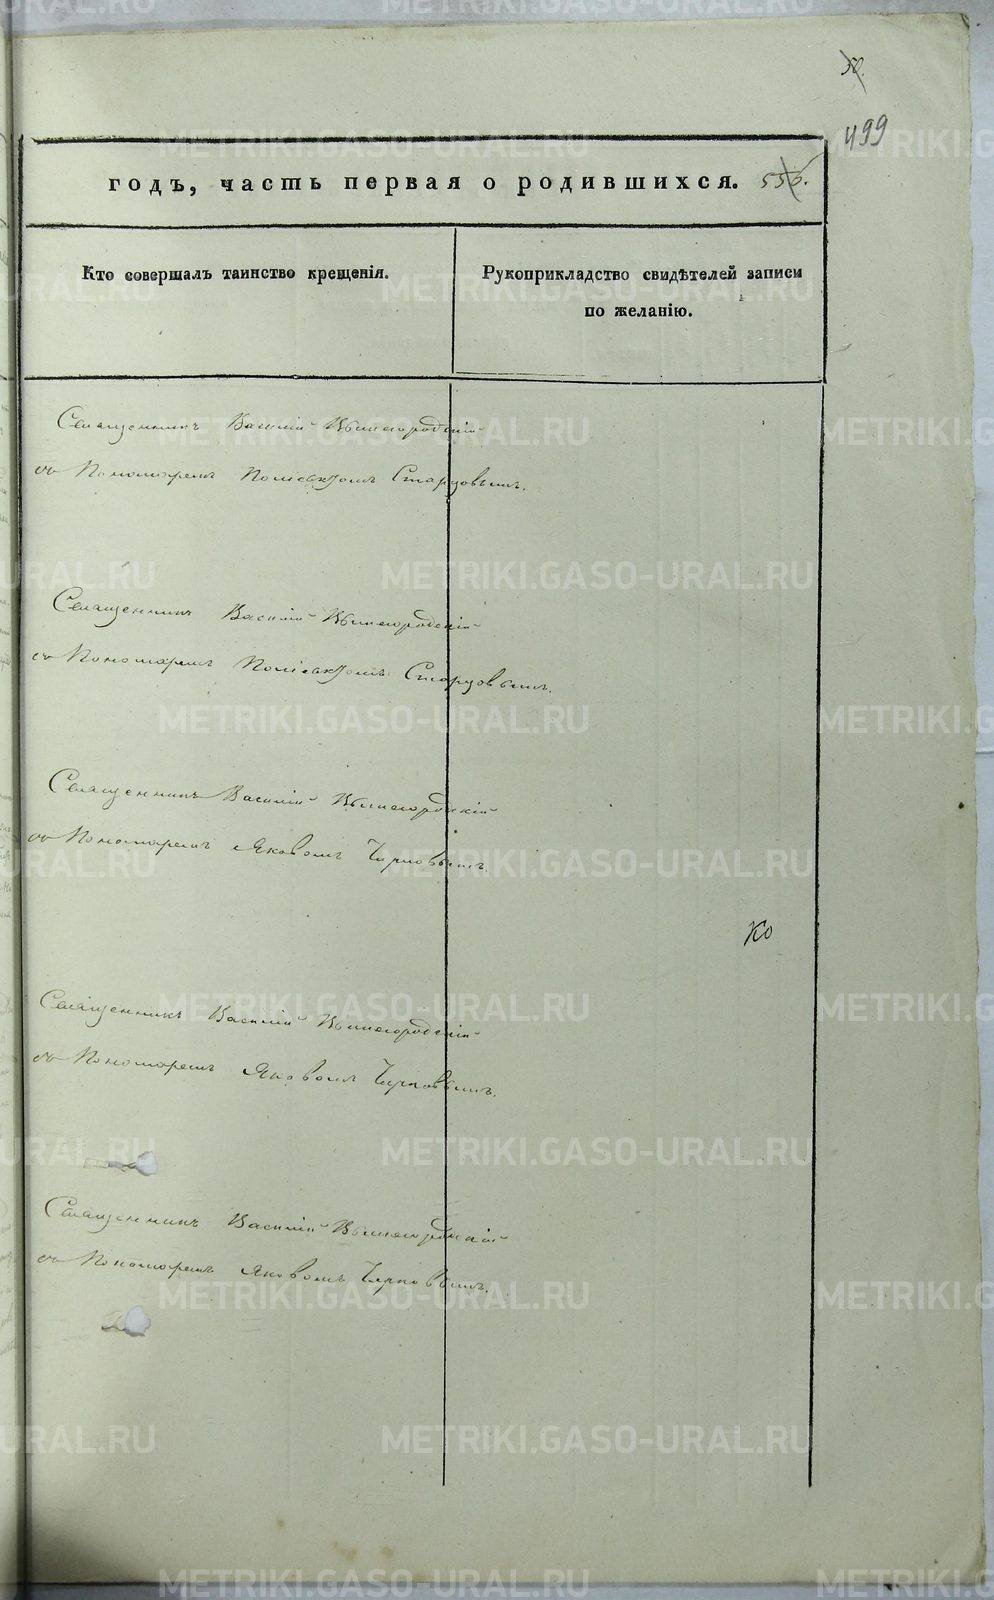 38.
499
годъ, часть первая о родившихся. 556.
Кто совершалъ таинство крещенія.
Рукоприкладство свидѣтелей записи
по желанію.
Священникъ Василій Вышегородскій
съ Пономаремъ Поліевктомъ Старцовымъ.
Священникъ Василій Вышегородскій
съ Пономаремъ Поліевктомъ Старцовымъ.
Священникъ Василій Вышегородскій
съ Пономаремъ Яковомъ Чирковымъ.
Ко
Священникъ Василій Вышегородскій
съ Пономаремъ Яковомъ Чирковымъ.
Священникъ Василій Вышегородскій
съ Пономаремъ Яковомъ Чирковымъ.
METRIKI.GASO-URAL.RU